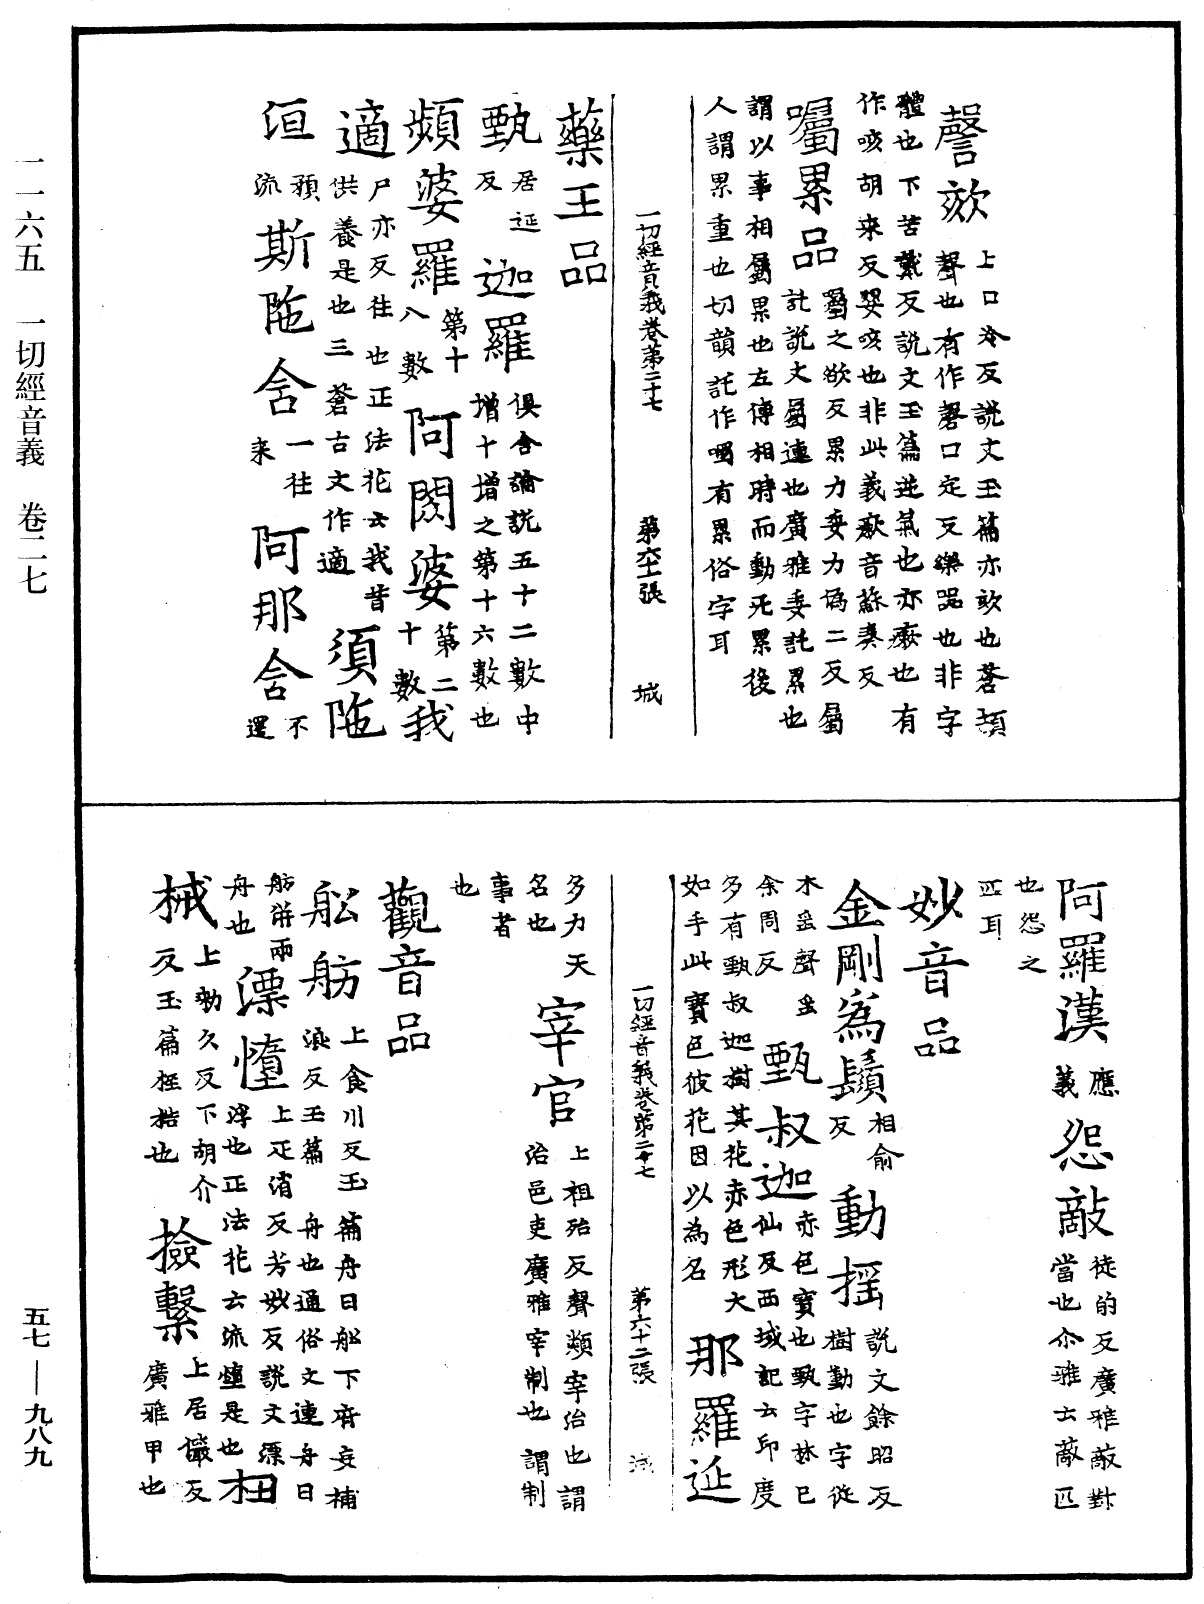 一一六五　一切經音義　卷二七
謦欬 上口冷反說文玉篇亦欬也蒼頡
聲也有作磬口定反樂器也非字
體也下苦戴反說文玉篇逆氣也亦瘷也有
作咳胡来反嬰咳也非此義瘶音蘇奏反
囑累品 屬之欲反累力委力偽二反屬
託說文屬連也廣雅委託累也
謂以事相屬累也左傳相時而動死累後
人謂累重也切韻託作囑有累俗字耳
一切經音義卷第二十七　第六十一張　城
藥王品
甄 居延反 迦羅 俱舍論說五十二數中
增十增之第十六數也
頻婆羅 第十八數 阿閦婆 第二十數 我
適 尸亦反往也正法花云我昔
供養是也三蒼古文作適 須陁
洹 預流 斯陁含 一往来 阿那含 不還
阿羅漢 應義 怨敵 徒的反廣雅敵對
當也尒雅云敵匹
也怨之
匹耳
妙音品
金剛為鬚 相俞反 動搖 說文餘昭反
樹動也字從
木䍃聲䍃
余周反 甄叔迦 赤色寶也甄字林已
仙反西域記云印度
多有甄叔迦樹其花赤色形大
如手此寶色彼花因以為名 那羅延
一切經音義卷第二十七　第六十二張
多力天
名也 宰官 上祖殆反聲類宰治也謂
治邑吏廣雅宰制也謂制
事者
也
觀音品
舩舫 上食川反玉篇舟曰舩下府妄補
浪反玉篇舟也通俗文連舟曰
舫併兩
舟也 漂憧 上疋消反芳妙反說文漂
浮也正法花云流憧是也 杻
械 上勑久反下胡介
反玉篇桎梏也 撿繫 上居儼反
廣雅甲也
五七—九八九